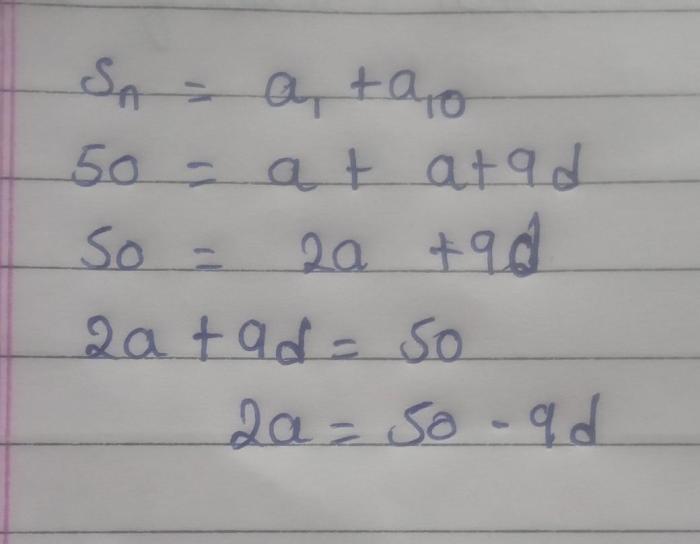 Sn = a₁ + a₁₀
50 = a + a+9d
50 = 2a +9d
2a + 9d = 50
2a = 50 - 9d